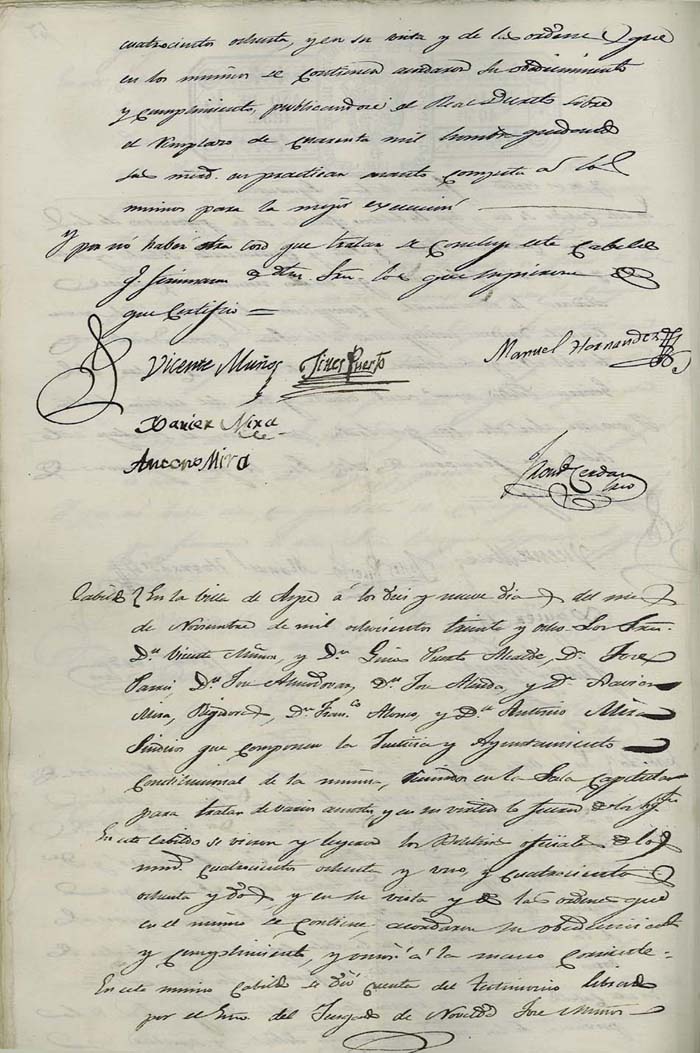 cuatrocientos ochenta, y en su vista y de las ordenes que
en los mismos se contienen acordaron su obedecimiento
y cumplimiento, publicandose el Real Decreto sobre
el reemplazo de cuarenta mil hombres quedando
sus mrds. en practicar cuanto competa a los
mismos para la mejor execucion
Y por no haber otra cosa que tratar se concluyo este Cabildo
q. firmaron dhos. Sres. los que supieron de
que Certifico =
Vicente Muños Jines Puerto Manuel Hernandez
Xavier Mira
Antono Mira
Cerdan
Cabildo En la villa de Aspe á los diez y nueve dias del mes
de Noviembre de mil ochocientos treinta y ocho Los Sres.
Dn. Vicente Muños, y Dn. Gines Puerto Alcaldes, Dn. Jose
Dn. Jose Almodovar, Dn. Jose Dn. Xavier
Mira, Regidores, Dn. Franco. Alonso, y Dn. Antonio Mira
Sindicos que componen la Justicia y Ayuntamiento
Constitucional de la misma, reunidos en la Sala Capitular
para tratar de varios asuntos y en su virtud lo hicieron de los sigtes.
En este cabildo se vieron y leyeron los Boletines oficiales de los
nums. cuatrocientos ochenta y uno, y cuatrocientos
ochenta y dos y en su vista y de las ordenes que
en el mismo se contiene, acordaron su obedecimiento
y cumplimiento, y á la mano corriente =
En este mismo Cabildo se dió cuenta del testimonio librado
por el Esno. del Juzgado de Novelda Jose Muños